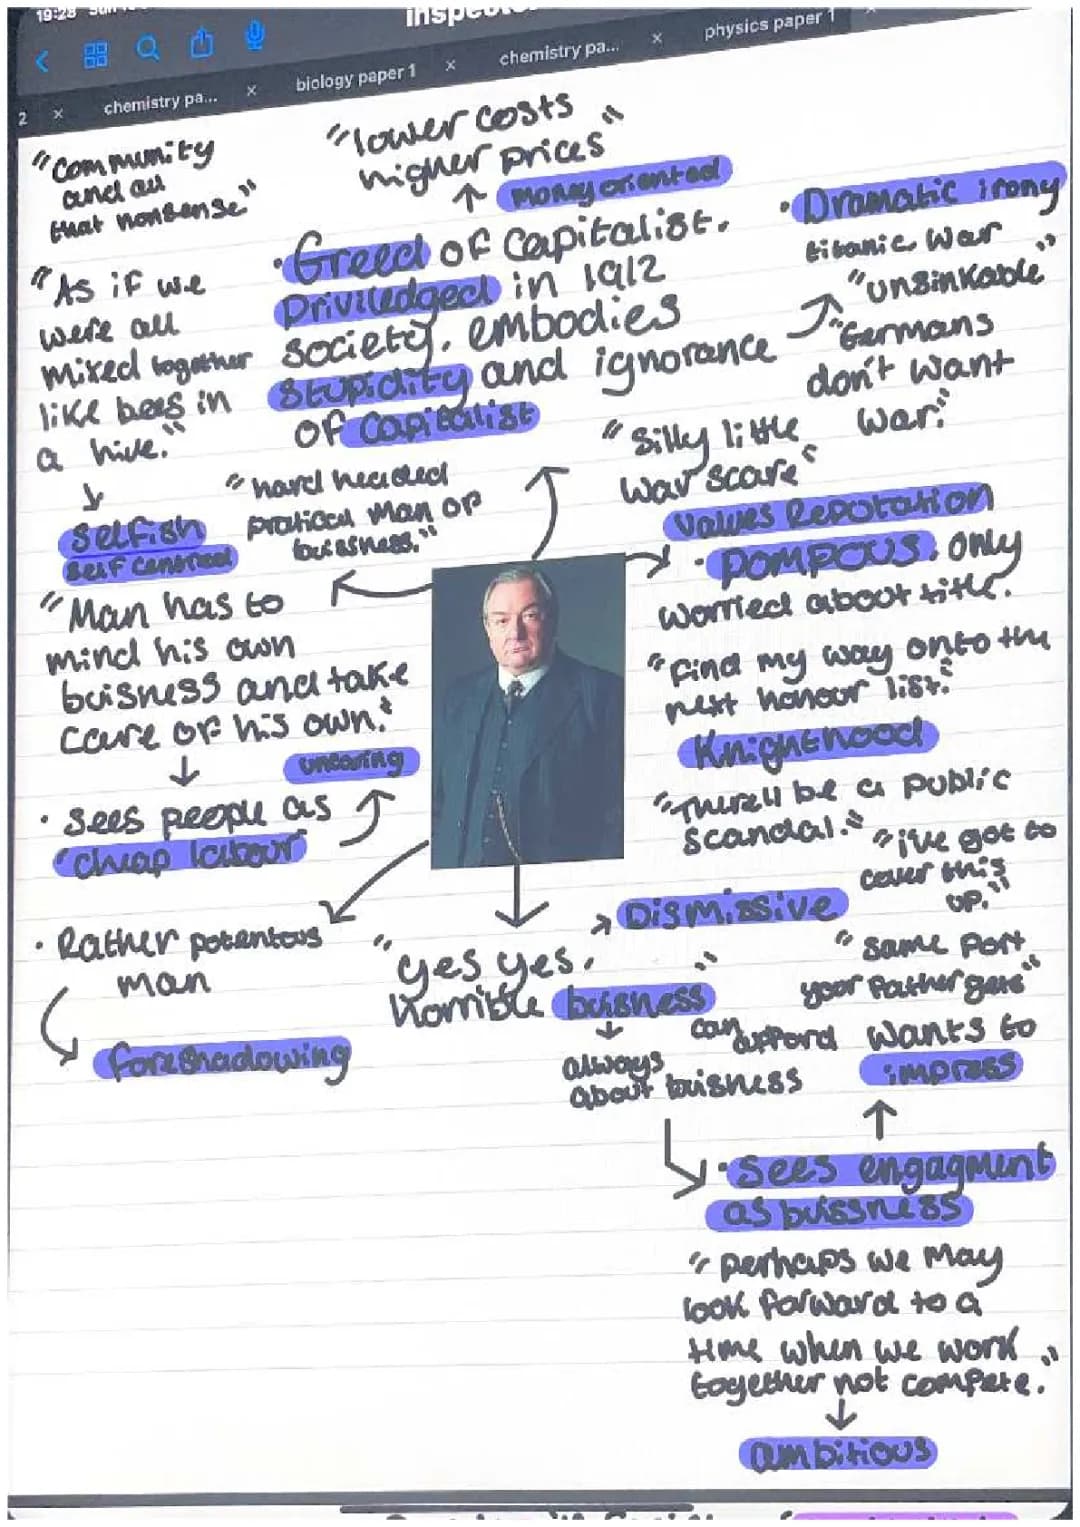 19:28
inspecto
2 × chemistry pa... × biology paper 1 × chemistry pa... × physics paper 1 ×
"Community
and all
that nonsense"
"lower costs
higher prices"
money oriented
"As if we
were all
mixed together
like bees in
a hive."
selfish
self centred
• Greed of Capitalist.
Priviledged in 1912
society. embodies
stupidity and ignorance
of Capitalist
• Dramatic irony
titanic War
"unsinkable"
"Germans
don't want
war."
"Silly little
war scare"
"hard headed
pratical man of
buissness."
Values Reputation
• POMPOUS. Only
worried about title.
"find my way onto the
next honour list."
Knighthood
"There'll be a public
scandal."
"i've got to
cover this
up."
"Man has to
mind his own
buisness and take
care of his own."
uncaring
• Sees people as
"cheap labour"
• Rather potentous
man
foreshadowing
"yes yes.
horrible buisness"
Dismissive
always
about buisness
"same port
your father gets"
can afford
wants to
impress
• Sees engagment
as buissness
"perhaps we may
look forward to a
time when we work
together not compete."
ambitious